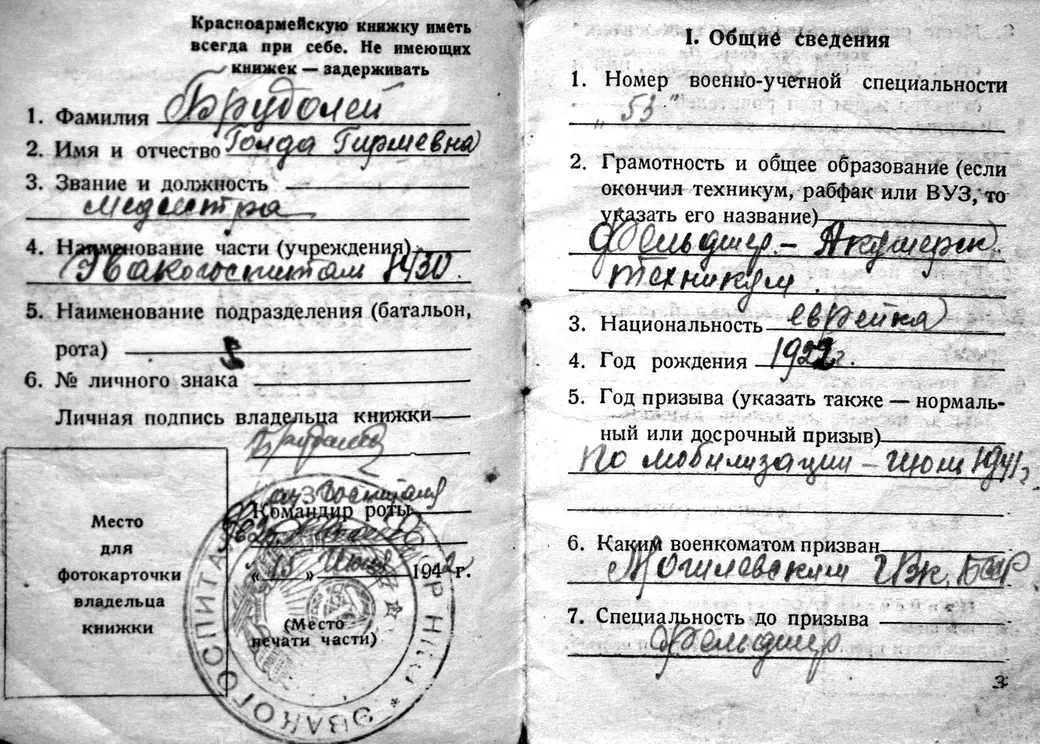 Красноармейскую книжку иметь
всегда при себе. Не имеющих
книжек — задерживать
1. Фамилия Брудолей
2. Имя и отчество Голда Гиршевна
3. Звание и должность
медсестра
4. Наименование части (учреждения)
Эвакогоспиталь
5. Наименование подразделения (батальон,
рота)
6. № личного знака
Личная подпись владельца книжки
Командир роты
"15" Июня 1942 г.
(Место
печати части)
Место
для
фотокарточки
владельца
книжки
ЭВАКОГОСПИТАЛ
I. Общие сведения
1. Номер военно-учетной специальности
"53"
2. Грамотность и общее образование (если
окончил техникум, рабфак или ВУЗ, то
указать его название)
Фельдшер – Акушерск.
техникум.
3. Национальность еврейка
4. Год рождения 1922 г.
5. Год призыва (указать также — нормаль-
ный или досрочный призыв)
По мобилизации – июнь 1941 г.
6. Каким военкоматом призван
Могилевским ГВК, БССР
7. Специальность до призыва
Фельдшер
3